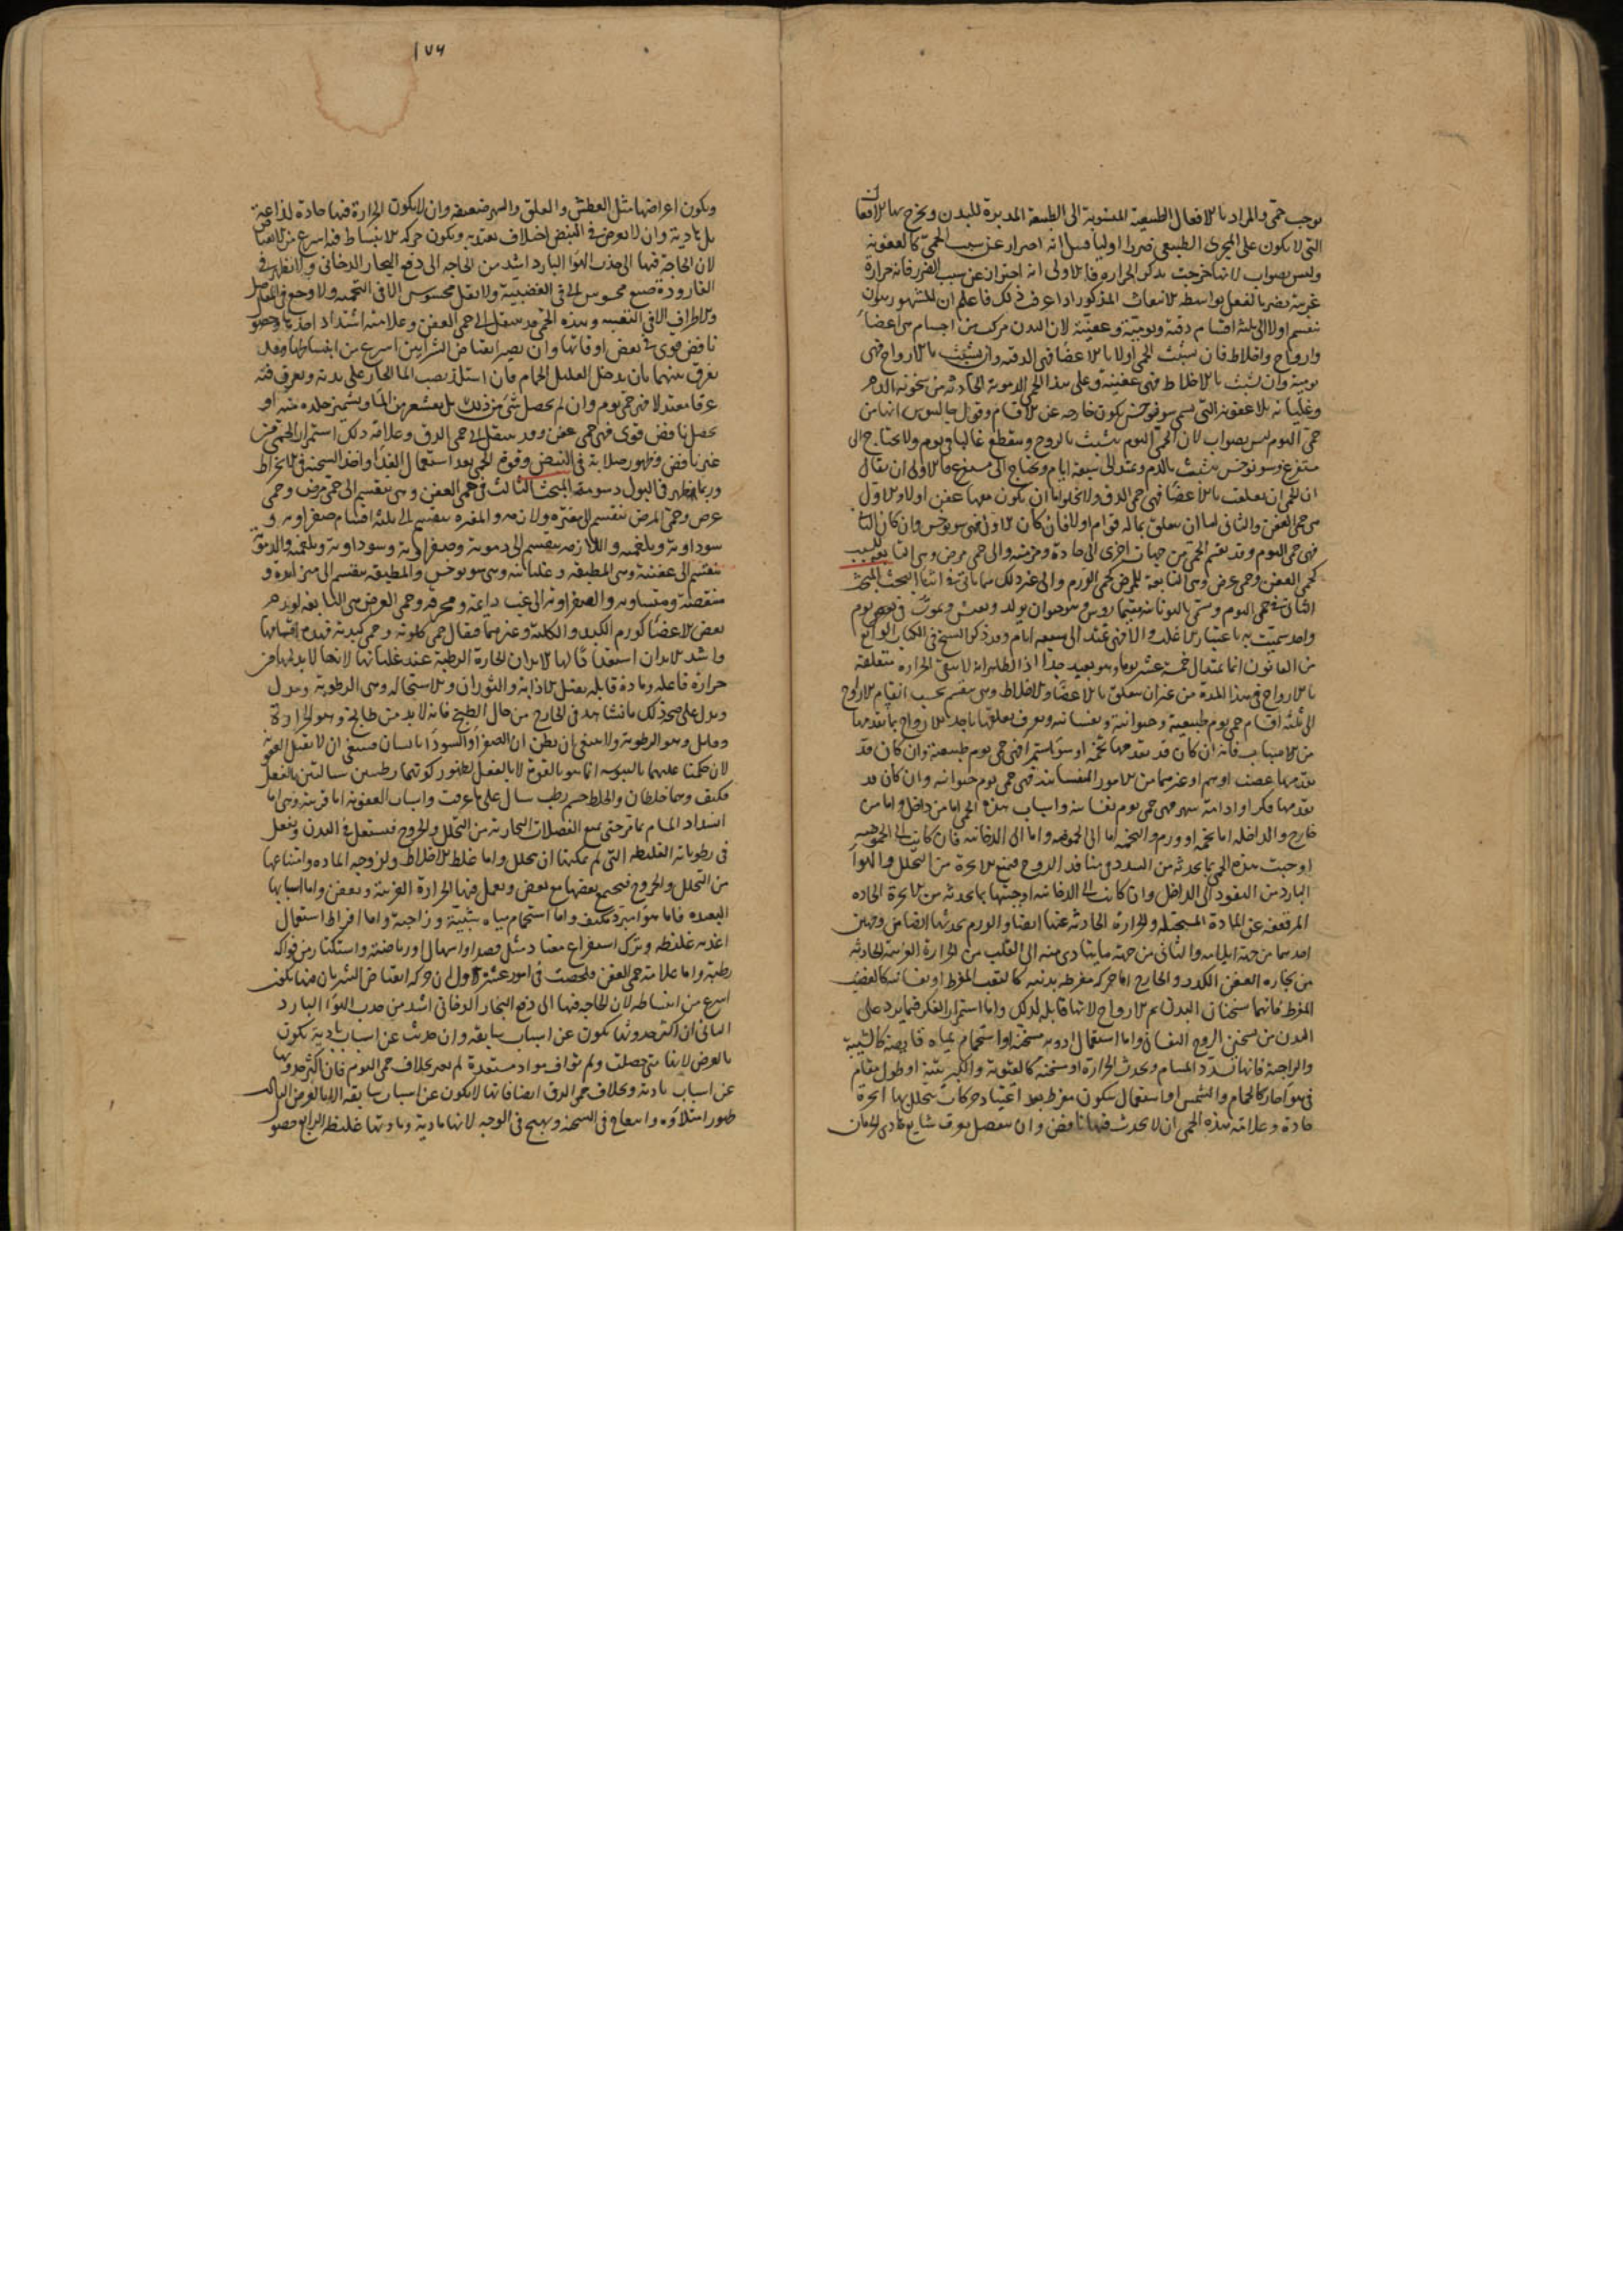 توجب حمى والمراد بالافعال الطبيعية المنسوبة الى الطبيعة المدبرة للبدن ويخرج بها الافعال
التى لا يكون على المجرى الطبيعى ضررا اوليا قيل انه احتراز عن سبب الحمى كالعفونة
وليس بصواب لانها خرجت بذكر الحرارة فالاولى انه احتراز عن سبب الضرر فانه حرارة
غريبة تضر بالفعل بواسطة الانبعاث المذكور اذا عرفت ذلك فاعلم ان المشهور بينهم
تنقسم اولا الى ثلثة اقسام دقية ويومية وعفنية لان البدن مركب من اجسام هى اعضاء
وارواح واخلاط فان تشبثت الحمى اولا بالاعضاء فهى الدقية وان تشبثت بالارواح فهى
يومية وان تشبثت بالاخلاط فهى عفنية وعلى هذا الحمى الدموية الحادثة من سخونة الدم
وغليانه بلا عفونة التى تسمى سونوخس يكون خارجة عن الاقسام وقول جالينوس انها من
حمى اليوم ليس بصواب لان حمى اليوم تتشبث بالروح وينقطع غالبا فى يوم ولا يحتاج الى
مستفرغ وسونوخس يتشبث بالدم ويمتد الى سبعة ايام ويحتاج الى مستفرغ فالاولى ان يقال
ان الحمى ان تعلقت بالاعضاء فهى حمى الدق ولا يخلو اما ان يكون معها عفن اولا والاول
هى حمى العفن والثانى اما ان يتعلق بماله قوام اولا فان كان الاول فهى سونوخس وان كان الثانى
فهى حمى اليوم وقد تقسم الحمى من جهات اخرى الى حادة ومزمنة والى حمى مرض وهى التابعة للسبب
كحمى العفن وحمى عرض وهى التابعة للمرض كحمى الورم والى غير ذلك مما ياتى فى اثناء البحث المبحث
الثانى فى حمى اليوم وتسمى باليونانية وهو حيوان يولد ويعيش ويموت فى بعض يوم
واحد سميت به باعتبار الاغلب والا فهى تمتد الى سبعة ايام وقد ذكر الشيخ فى الكتاب الرابع
من القانون انها تمتد الى خمسة عشر يوما وهو بعيد جدا اذ الظاهر انه لا يبقى الحرارة متعلقة
بالارواح فى هذا المدة من غير ان يتعلق بالاعضاء والاخلاط وهى تنقسم بحسب انقسام الارواح
الى ثلثة اقسام حمى يوم طبيعية وحيوانية ونفسانية ويعرف تعلقها باحد الارواح بما تقدمها
من الاسباب فانه ان كان قد تقدمها تخمة او سوء استمراء فهى حمى يوم طبيعية وان كان قد
تقدمها غضب او هم او غيرهما من الامور النفسانية فهى حمى يوم حيوانية وان كان قد
تقدمها فكر او ادامة سهر فهى حمى يوم نفسانية واسباب هذه الحمى اما من داخل واما من
خارج والداخلة اما تخمة او ورم والتخمة اما الى الحموضة واما الى الدخانية فان كانت الى الحموضة
اوجبت هذه الحمى بما يحدثه من السدد فى منافذ الروح فيمنع الابخرة من التحلل والهواء
البارد من النفوذ الى الداخل وان كانت الى الدخانية اوجبتها بما يحدثه من الابخرة الحادة
المرتفعة عن المادة المستحيلة والحرارة الحادثة عنها ايضا والورم يحدثها ايضا من وجهين
احدهما من جهة ايلامه والثانى من جهة ما يتادى منه الى القلب من الحرارة الغريبة الحادثة
من بخاره العفن الكدر والخارج اما حركة مفرطة بدنية كالتعب المفرط او نفسانية كالغضب
المفرط فانهما يسخنان البدن ثم الارواح لانها قابلة لذلك واما استمرار الفكر فيما يرد على
البدن من تسخين الروح النفسانى واما استعمال ادوية مسخنة او استحمام بمياه قابضة كالشبية
والزاجية فانها تسدد المسام ويحدث الحرارة او مسخنة كالنفطية والكبريتية او طول مقام
فى هواء حار كالحمام والشمس او استعمال سكون مفرط بعد اعتياد حركات يتحلل بها ابخرة
حادة وعلامة هذه الحمى ان لا يحدث فيها نافض وان ينفصل بعرق شايع نادى الجريان
١٧٦
ويكون اعراضها مثل العطش والقلق والسهر ضعيفة وان لا يكون الحرارة فيها حادة لذاعة
بل هادية وان لا يعرض فى النبض اختلاف يعتد به ويكون حركة الانبساط فيه اسرع من الانقباض
لان الحاجة فيها الى جذب الهواء البارد اشد من الحاجة الى دفع البخار الدخانى ولا يظهر فى
القارورة صبغ محسوس الا فى الغضبية ولا ثقل محسوس الا فى التخمية ولا وجع فى المفاصل
والاطراف الا فى التعبية وهذه الحمى قد تنتقل الى حمى العفن وعلامته اشتداد اخذها وحصول
نافض قوى فى بعض اوقاتها وان يصير انقباض الشرايين اسرع من انبساطها وقد
يفرق بينهما بان يدخل العليل الحمام فان استلذ بصب الماء الحار على بدنه وتعرق فيه
عرقا معتدلا فهى حمى يوم وان لم يحصل شى من ذلك بل يقشعر من الماء ويشمئز جلده منه او
يحصل نافض قوى فهى حمى عفن وقد تنتقل الى حمى الدق وعلامة ذلك استمرار الحمى من
غير نافض وظهور صلابة فى النبض وقوة الحمى بعد استعمال الغذاء واخذ السحنة فى الانخراط
وربما ظهر فى البول دسومة المبحث الثالث فى حمى العفن وهى تنقسم الى حمى مرض وحمى
عرض وحمى المرض تنقسم الى مفترة ولازمة والمفترة تنقسم الى ثلثة اقسام صفراوية و
سوداوية وبلغمية واللازمة تنقسم الى دموية وصفراوية وسوداوية وبلغمية والدموية
تنقسم الى عفنية وهى المطبقة وغليانية وهى سونوخس والمطبقة تنقسم الى متزايدة و
متنقصة ومتساوية والصفراوية الى غب دايمة ومحرقة وحمى العرض هى التابعة لورم
بعض الاعضاء كورم الكبد والكلية وغيرهما فيقال حمى كلوية وحمى كبدية فهذه اقسامها
واشد الابدان استعدادا لها الابدان الحارة الرطبة عند غليانها لانها لا بد لها من
حرارة فاعلة ومادة قابلة بمثل الاذابة والثوران والاستحالة وهى الرطوبة
ويدل على صحة ذلك ما نشاهد فى الخارج من حال الطبخ فانه لا بد من طابخ وهو الحرارة
وقابل وهو الرطوبة ولا ينبغى ان يظن ان الصفراء والسوداء يابستان فينبغى ان لا تقبل العفونة
لان حكمنا عليهما باليبوسة انما هو بالقوة لا بالفعل لظهور كونهما رطبتين سيالتين بالفعل
فكيف وهما خلطان والخلط جسم رطب سيال على ما عرفت واسباب العفونة اما قريبة وهى اما
انسداد المسام بما مر حتى يمنع الفضلات البخارية من التحلل والخروج فيشتعل فى البدن ويفعل
فى رطوباته الغليظة التى لم يمكنها ان يتحلل واما غلظ الاخلاط ولزوجة المادة وامتناعها
من التحلل والخروج فيجتمع بعضها مع بعض ويعمل فيها الحرارة الغريبة ويعفن واما اسبابها
البعيدة فاما هواء مبرد مكثف واما استحمام بمياه شبية وزاجية واما افراط استعمال
اغذية غليظة وترك استفراغ معتاد مثل فصد او اسهال او رياضة واستكثار من فواكه
رطبة واما علامة حمى العفن فلخصت فى امور عشرة الاول ان حركة انقباض الشريان فيها يكون
اسرع من انبساطه لان الحاجة فيها الى دفع البخار الدخانى اشد من جذب الهواء البارد
الثانى ان اكثر حدوثها يكون عن اسباب سابقة وان حدثت عن اسباب بادية يكون
بالعرض لانها متى حصلت ولم تواف مواد مستعدة لم تضر بخلاف حمى اليوم فان اكثر حدوثها
عن اسباب بادية وبخلاف حمى الدق ايضا فانها لا يكون عن اسباب سابقة الا بالعرض الثالث
ظهور امتلاء وانتفاخ فى السحنة وتهيج فى الوجه لانها مادية ومادتها غليظة الرابع حصول